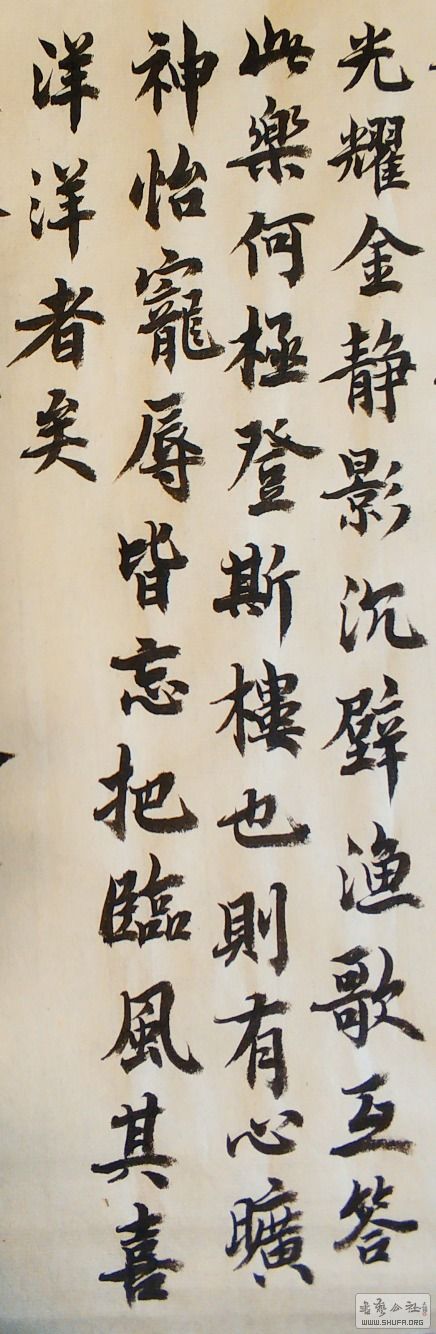 光耀金静影沉璧渔歌互答
此樂何極登斯樓也則有心曠
神怡寵辱皆忘把臨風其喜
洋洋者矣
書藝公社
WWW.SHUFA.ORG